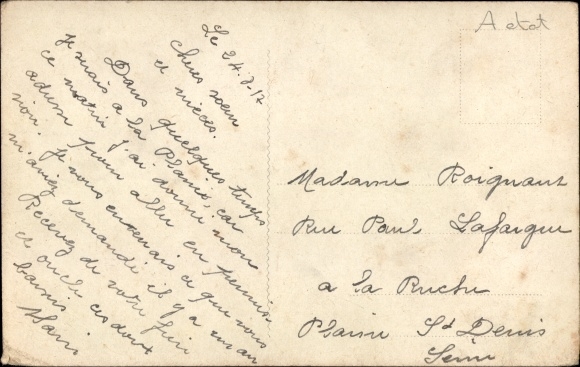 Le 24-7-17
Chères soeur
et nièces.
Dans quelques temps
je serais a la Plaine, car
ce matin j'ai donné mon
adresse pour aller en permis
sion. Je vous envenais ce que vous
m'aviez demandé il y a un an
Recevez de votre frère
et oncle ces doux
baisers
A état
Madame Roignant
Rue Paul Lafargue
a la Ruche
Plaine St Denis
Seine